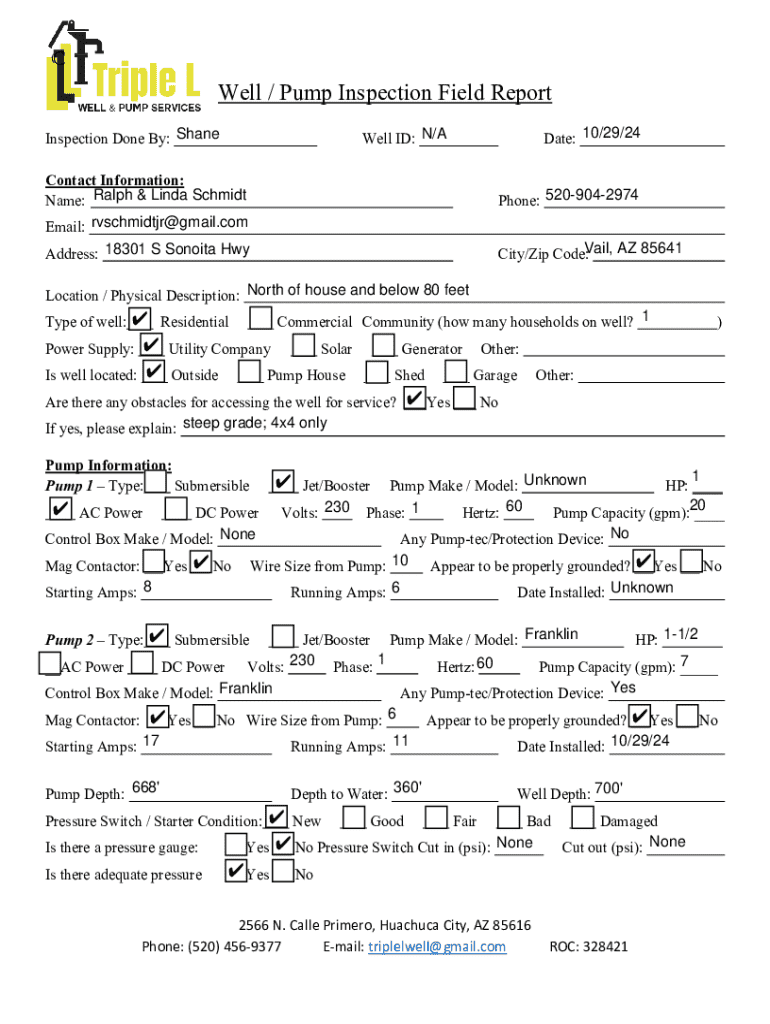 Triple L
WELL & PUMP SERVICES
Well / Pump Inspection Field Report
Inspection Done By: Shane Well ID: N/A Date: 10/29/24
Contact Information:
Name: Ralph & Linda Schmidt Phone: 520-904-2974
Email: rvschmidtjr@gmail.com
Address: 18301 S Sonoita Hwy City/Zip Code: Vail, AZ 85641
Location / Physical Description: North of house and below 80 feet
Type of well: ✔ Residential Commercial Community (how many households on well? 1 )
Power Supply: ✔ Utility Company Solar Generator Other:
Is well located: ✔ Outside Pump House Shed Garage Other:
Are there any obstacles for accessing the well for service? ✔ Yes No
If yes, please explain: steep grade; 4x4 only
Pump Information:
Pump 1 – Type: Submersible ✔ Jet/Booster Pump Make / Model: Unknown HP: 1
✔ AC Power DC Power Volts: 230 Phase: 1 Hertz: 60 Pump Capacity (gpm): 20
Control Box Make / Model: None Any Pump-tec/Protection Device: No
Mag Contactor: Yes ✔ No Wire Size from Pump: 10 Appear to be properly grounded? ✔ Yes No
Starting Amps: 8 Running Amps: 6 Date Installed: Unknown
Pump 2 – Type: ✔ Submersible Jet/Booster Pump Make / Model: Franklin HP: 1-1/2
AC Power DC Power Volts: 230 Phase: 1 Hertz: 60 Pump Capacity (gpm): 7
Control Box Make / Model: Franklin Any Pump-tec/Protection Device: Yes
Mag Contactor: ✔ Yes No Wire Size from Pump: 6 Appear to be properly grounded? ✔ Yes No
Starting Amps: 17 Running Amps: 11 Date Installed: 10/29/24
Pump Depth: 668' Depth to Water: 360' Well Depth: 700'
Pressure Switch / Starter Condition: ✔ New Good Fair Bad Damaged
Is there a pressure gauge: Yes ✔ No Pressure Switch Cut in (psi): None Cut out (psi): None
Is there adequate pressure ✔ Yes No
2566 N. Calle Primero, Huachuca City, AZ 85616
Phone: (520) 456-9377 E-mail: triplelwell@gmail.com ROC: 328421